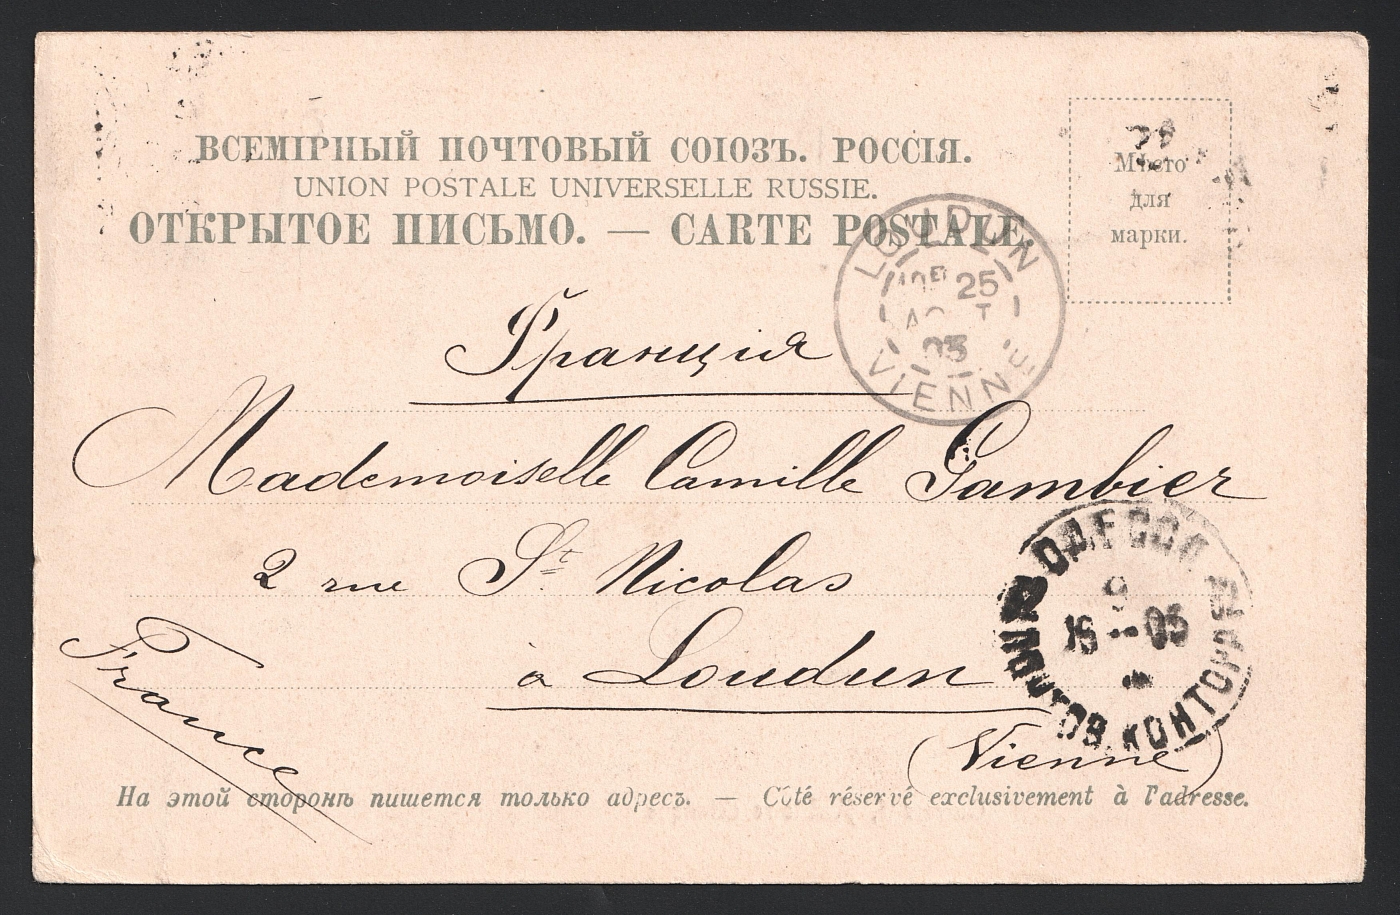 ВСЕМІРНЫЙ ПОЧТОВЫЙ СОЮЗЪ. РОССІЯ.
UNION POSTALE UNIVERSELLE RUSSIE.
ОТКРЫТОЕ ПИСЬМО. — CARTE POSTALE.
Мѣсто
для
марки.
LOUDUN
25
03
VIENNE
Франція
Mademoiselle Camille Gambier
2 rue St. Nicolas
à Loudun
(Vienne)
France
ОДЕССА
03
ПОЧТОВ. КОНТОРА
На этой сторонѣ пишется только адресъ. — Côté réservé exclusivement à l'adresse.